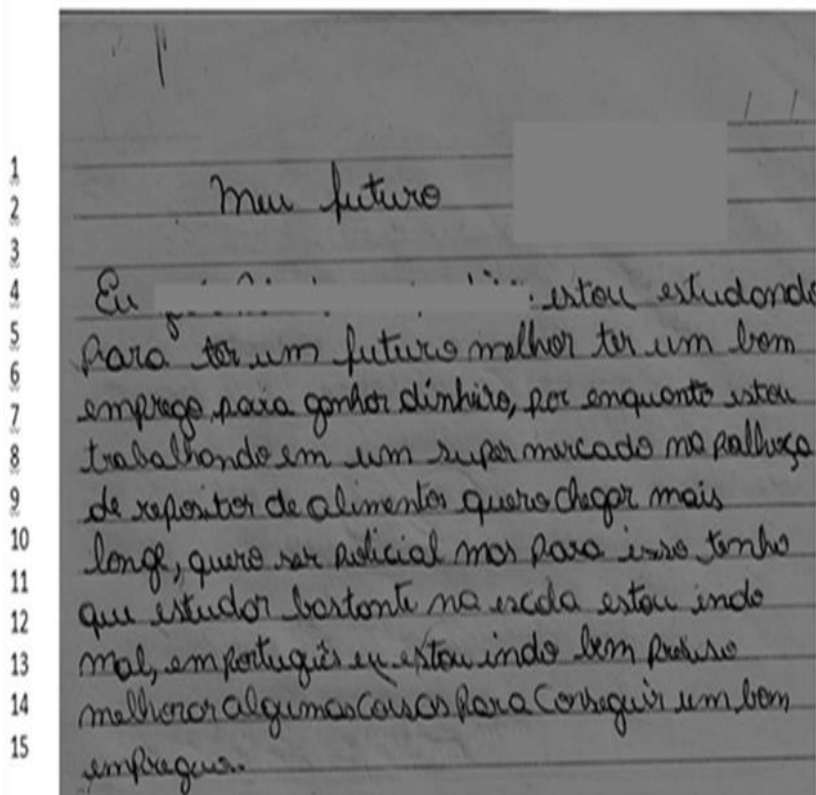 1
2
3
4
5
6
7
8
9
10
11
12
13
14
15
Meu futuro
Eu estou estudando
Para ter um futuro melhor ter um bom
emprego, para ganhar dinheiro, por enquanto estou
trabalhando em um super mercado na palhoça
de repositor de alimentos quero chegar mais
longe, quero ser policial mas Para isso tenho
que estudar bastante na escola estou indo
mal, em português eu estou indo bem Preciso
melhorar algumas coisas Para Conseguir um bom